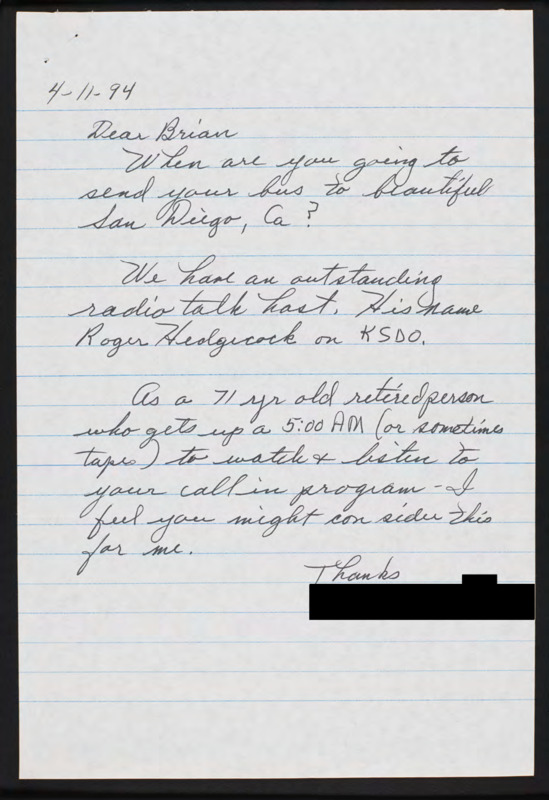 4-11-94
Dear Brian
When are you going to
send your bus to beautiful
San Diego, Ca ?
We have an outstanding
radio talk host. His name
Roger Hedgecock on KSDO.
As a 71 yr old retired person
who gets up a 5:00 AM (or sometimes
tapes) to watch & listen to
your call in program - I
feel you might consider this
for me.
Thanks